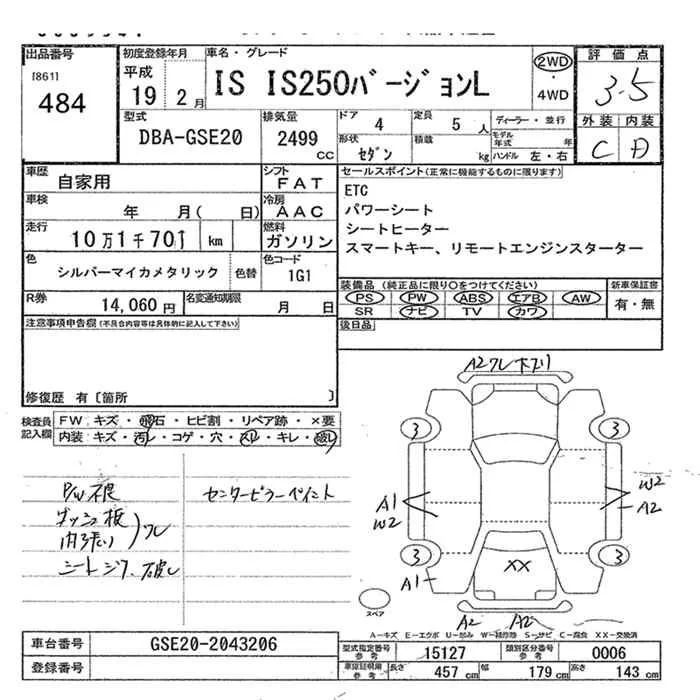 出品番号
[861]
484
初度登録年月
平成
19 2月
車名・グレード
IS IS250バージョンL
2WD
・
4WD
評価点
3.5
外装 内装
C D
型式
DBA-GSE20
排気量
2499
CC
ドア
4
定員
5人
ディーラー・並行
形状
セダン
積載
kg
モデル年式 年
ハンドル 左・右
車歴
自家用
シフト
FAT
車検
年 月( 日)
冷房
AAC
走行
10万1千701 km
燃料
ガソリン
色
シルバーマイカメタリック
色替
色コード
1G1
R券
14,060円
名変通知期限
月 日
セールスポイント(正常に機能するものに限ります)
ETC
パワーシート
シートヒーター
スマートキー、リモートエンジンスターター
装備品(純正品に限り○をつけてください)
PS PW ABS エアB AW
SR ナビ TV カワ
新車保証書
有・無
後日品
注意事項申告欄(不具合内容等は具体的に記入して下さい)
修復歴 有[箇所 ]
検査員
記入欄
FW キズ・飛石・ヒビ割・リペア跡・×要
内装 キズ・汚レ・コゲ・穴・スレ・キレ・破レ
P/W不良
ダッシュ板
内張り
ワレ
センターピラーペイント
A2
3
3
A1
W2
W2
A2
3
3
A1
XX
A2
A2
スペア
A-キズ E-エクボ U-凹み W-補修跡 S-サビ C-腐食 XX-交換済
車台番号
GSE20-2043206
登録番号
型式指定番号
参考
15127
類別区分番号
参考
0006
車庫証明用
参考
長さ
457cm
幅
179cm
高さ
143cm